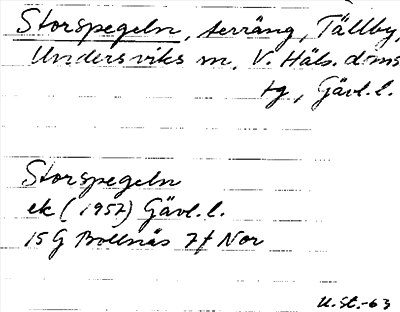 Storspegeln, terräng, Tällby,
Undersviks sn, V. Häls. doms
tg, Gävl. l.
Storspegeln
ek (1957) Gävl. l.
15 G Bollnäs 7f Nor
U. St. -63